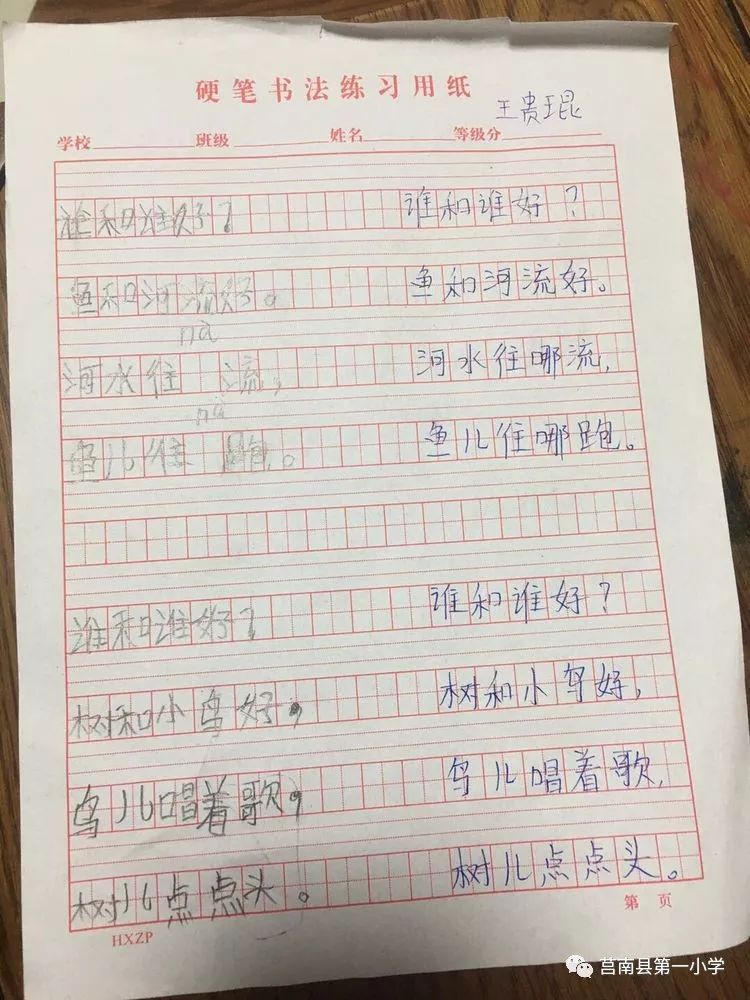 硬笔书法练习用纸
王贵琨
学校 班级 姓名 等级分
谁和谁好? 谁和谁好?
鱼和河流好。 鱼和河流好。
nǎ
河水往 流, 河水往哪流,
nǎ
鱼儿往 跑。 鱼儿住哪跑。
谁和谁好? 谁和谁好?
树和小鸟好, 树和小鸟好,
鸟儿唱着歌, 鸟儿唱着歌,
树儿点点头。 树儿点点头。
HXZP 第 页
莒南县第一小学